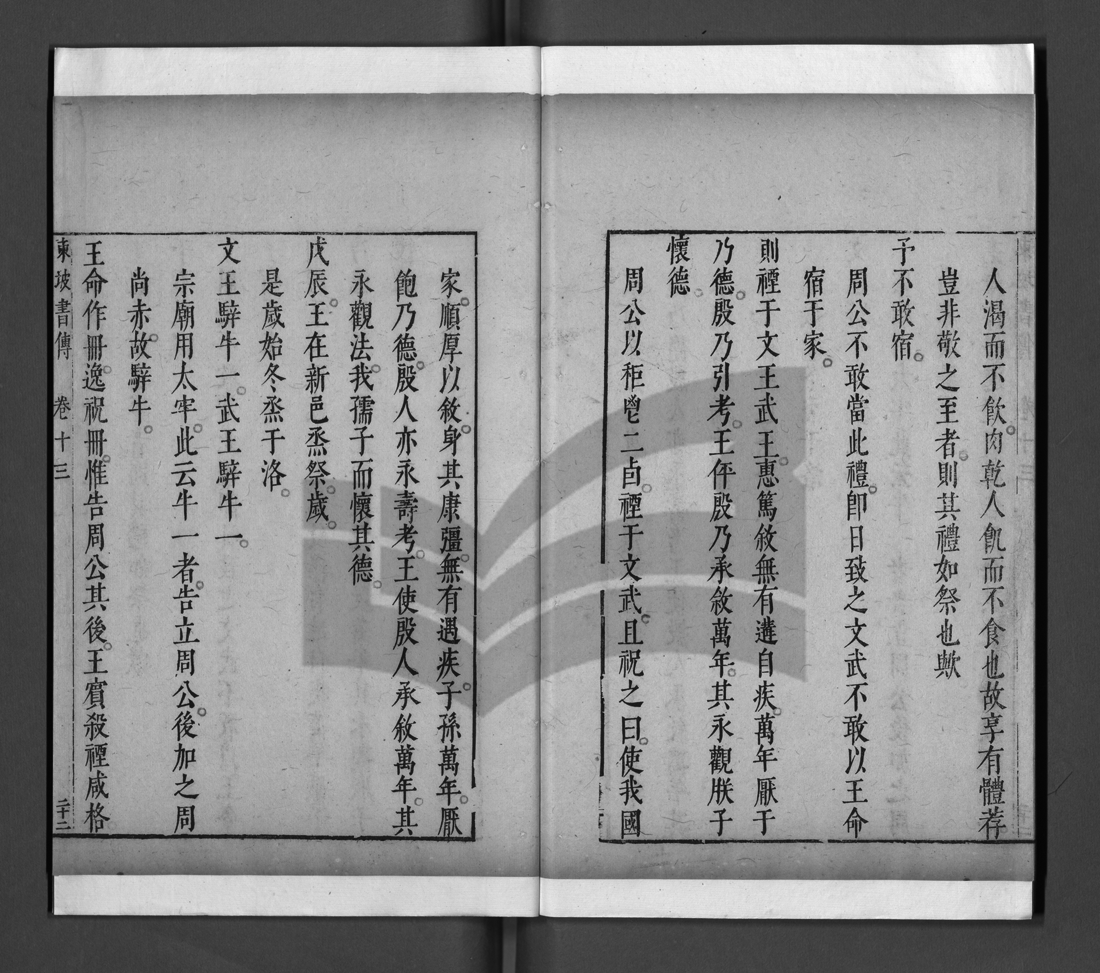 人渴而不飲肉乾人飢而不食也故享有體荐
豈非敬之至者則其禮如祭也歟
予不敢宿
周公不敢當此禮即日致之文武不敢以王命
宿于家
則禋于文王武王惠篤敘無有遘自疾萬年厭于
乃德殷乃引考王伻殷乃承敘萬年其永觀朕子
懷德
周公以秬鬯二卣禋于文武且祝之曰使我國
家順厚以敘身其康彊無有遇疾子孫萬年厭
飽乃德殷人亦永壽考王使殷人承敘萬年其
永觀法我孺子而懷其德
戊辰王在新邑烝祭歲
是歲始冬烝于洛
文王騂牛一武王騂牛一
宗廟用太牢此云牛一者告立周公後加之周
尚赤故騂牛
王命作冊逸祝冊惟告周公其後王賓殺禋咸格
東坡書傳 卷十三 二十二